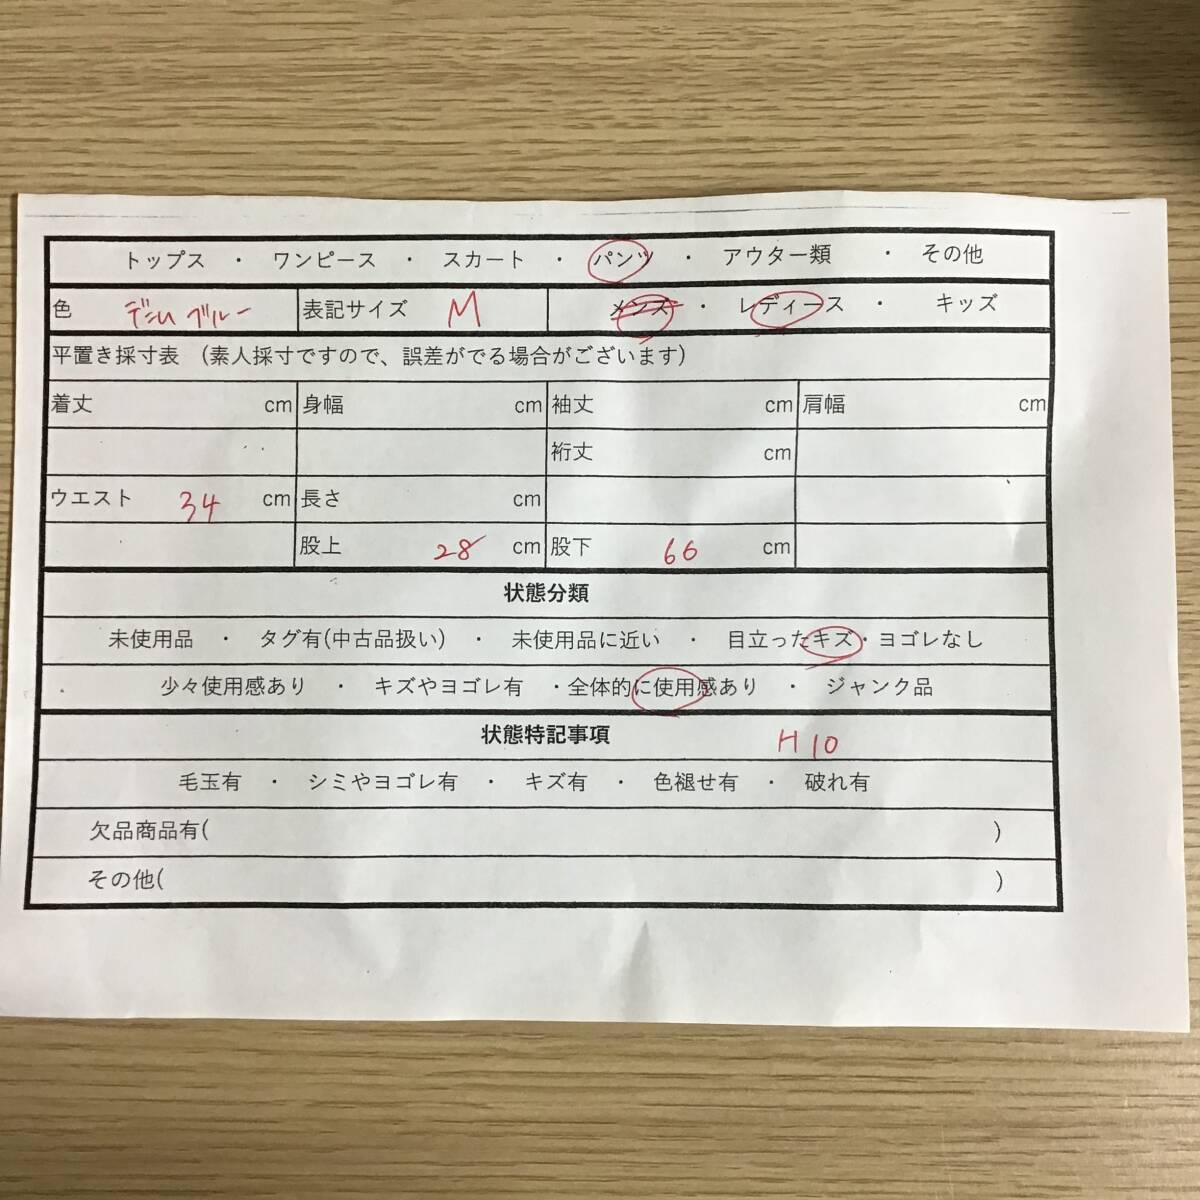 トップス ・ ワンピース ・ スカート ・ パンツ ・ アウター類 ・ その他
色 デニム ブルー 表記サイズ M メンズ ・ レディース ・ キッズ
平置き採寸表 (素人採寸ですので、誤差がでる場合がございます)
着丈 cm 身幅 cm 袖丈 cm 肩幅 cm
裄丈 cm
ウエスト 34 cm 長さ cm
股上 28 cm 股下 66 cm
状態分類
未使用品 ・ タグ有(中古品扱い) ・ 未使用品に近い ・ 目立ったキズ・ヨゴレなし
少々使用感あり ・ キズやヨゴレ有 ・全体的に使用感あり ・ ジャンク品
状態特記事項 H10
毛玉有 ・ シミやヨゴレ有 ・ キズ有 ・ 色褪せ有 ・ 破れ有
欠品商品有( )
その他( )